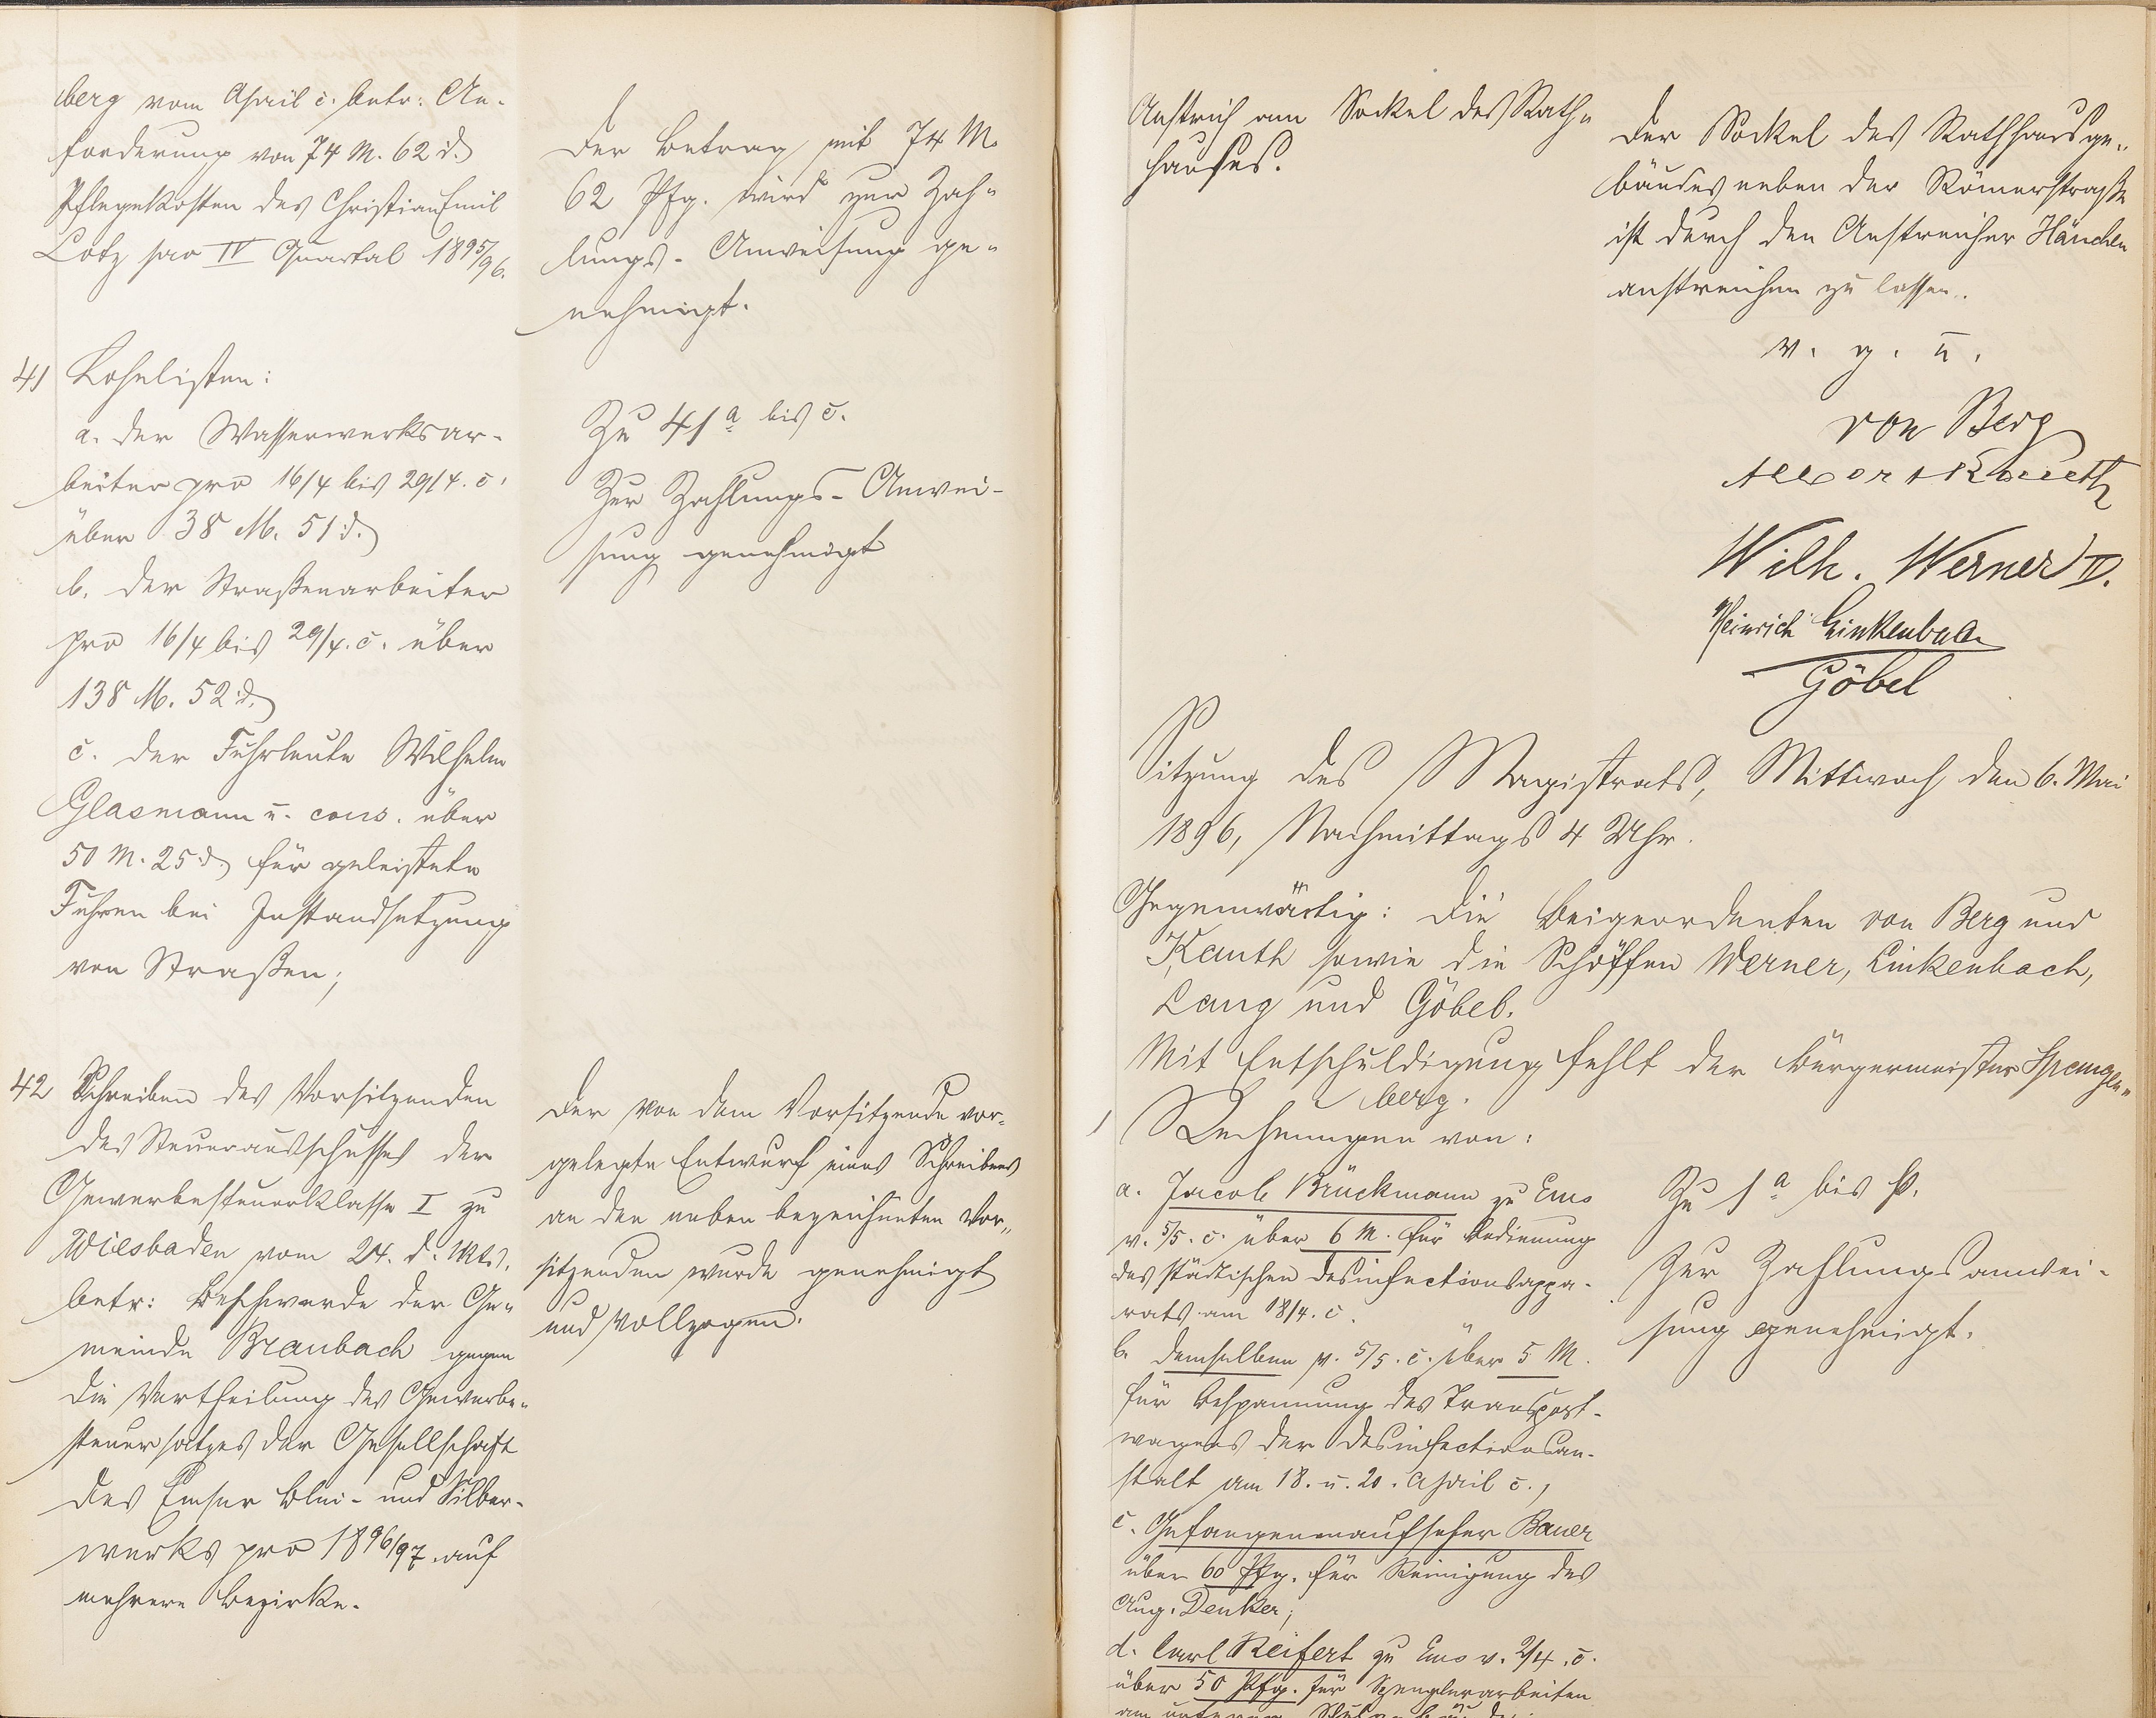 berg vom April c. betr: An-
forderung von 74 M. 62 d.
Pflegekosten des Christian Emil
Lotz pro IV Quartal 1895/96.
Der Betrag mit 74 M.
62 Pfg. wird zur Zah-
lungs-Anweisung ge-
nehmigt.
41 Lohnlisten:
a. der Wasserwerksar-
beiter pro 16/4 bis 29/4. c.
über 38 M. 51 d.
b. der Straßenarbeiter
pro 16/4 bis 29/4. c. über
138 M. 52 d.
c. der Fuhrleute Wilhelm
Glasmann u. cons. über
50 M. 25 d. für geleistete
Fuhren bei Instandsetzung
von Straßen;
Zu 41 a bis c.
Zur Zahlungs-Anwei-
sung genehmigt
42 Schreiben des Vorsitzenden
des Steuerausschusses der
Gewerbesteuerklasse I zu
Wiesbaden vom 24. d. Mts.
betr: Beschwerde der Ge-
meinde Braubach gegen
die Vertheilung des Gewerbe-
steuersatzes der Gesellschaft
des Emser Blei- und Silber-
werks pro 1896/97. auf
mehrere Bezirke.
Der von dem Vorsitzende vor-
gelegte Entwurf eines Schreibens
an den neben bezeichneten Vor-
sitzenden wurde genehmigt
und vollzogen.
Anstrich am Sockel des Rath-
hauses.
Der Sockel des Rathhausge-
bäudes neben der Römerstraße
ist durch den Anstreicher Hänchen
anstreichen zu lassen.
v. g. u.
von Berg
Albert Kauth
Wilh. Werner II.
Heinrich Linkenbach
Göbel
Sitzung des Magistrats, Mittwoch den 6. Mai
1896, Nachmittags 4 Uhr.
Gegenwärtig: Die Beigeordneten von Berg und
Kauth sowie die Schöffen Werner, Linkenbach,
Lang und Göbel.
Mit Entschuldigung fehlt der Bürgermeister Spangen-
berg.
1 Rechnungen von:
a. Jacob Brückmann zu Ems
v. 5/5. c. über 6 M. für Bedienung
des städtischen Desinfectionsappa-
rats am 18/4. c.
b. demselben v. 5/5. c. über 5 M.
für Bespannung des Transport-
wagens der Desinfectionsan-
stalt am 18. u. 20. April c.,
c. Gefangenenaufseher Bauer
über 60 Pfg. für Reinigung des
Aug. Denker;
d. Carl Reifert zu Ems v. 2/4. c.
über 50 Pfg. für Spenglerarbeiten
Zu 1 a bis p.
Zur Zahlungsanwei-
sung genehmigt.